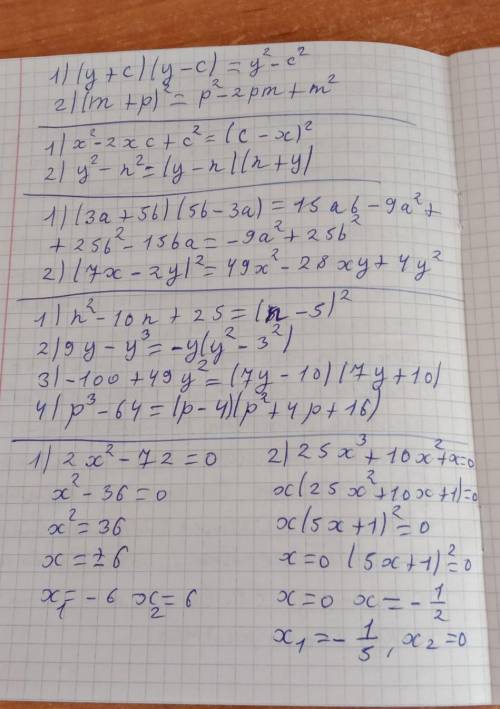 1) (y+c)(y-c) = y²-c²
2) (m+p)² = p²-2pm+m²
1) x²-2xc+c² = (c-x)²
2) y²-n² = (y-n)(n+y)
1) (3a+5b)(5b-3a) = 15ab-9a²+
+25b²-15ba = -9a²+25b²
2) (7x-2y)² = 49x²-28xy+4y²
1) n²-10n+25 = (n-5)²
2) 9y-y³ = -y(y²-3²)
3) -100+49y² = (7y-10)(7y+10)
4) p³-64 = (p-4)(p²+4p+16)
1) 2x²-72=0
x²-36=0
x²=36
x=±6
x₁=-6 x₂=6
2) 25x³+10x²+x=0
x(25x²+10x+1)=0
x(5x+1)²=0
x=0 (5x+1)²=0
x=0 x=-1/2
x₁=-1/5, x₂=0